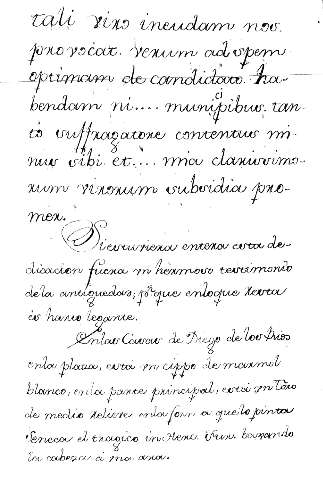 tali viro ineundam nos.
provocat. verum ad spem
optimam de candidato. ha-
bendam ni.... municipibus. tan-
to suffragatore contentus mi-
nus sibi et.... mia clarissimo-
rum virorum subsidia pro-
mer.
Si estuviera entera esta de-
dicacion fuera un hermoso testimonio
de la antiguedad; pº que en lo que resta
es harto legante.
En las Casas de Diego de los Rios
en la plaza, esta un cippo de marmol
blanco, en la parte principal, está un Toro
de medio relieve en la for. a que lo pinta
Seneca el tragico in Herc. Fur.
la cabeza á una ara.